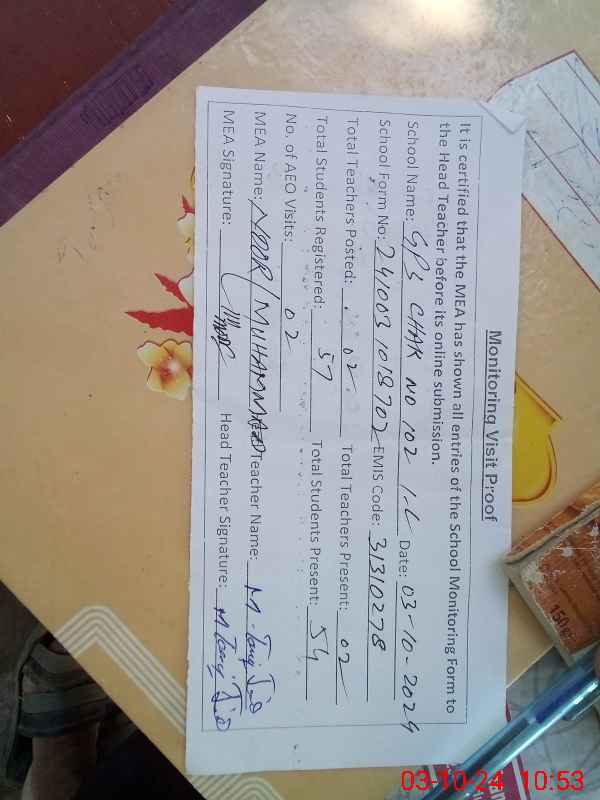 Monitoring Visit Proof
It is certified that the MEA has shown all entries of the School Monitoring Form to
the Head Teacher before its online submission.
School Name: GPS CHAK NO 102 1-L Date: 03-10-2024
School Form No: 2410031018702 EMIS Code: 31310278
Total Teachers Posted: 02 Total Teachers Present: 02
Total Students Registered: 57 Total Students Present: 54
No. of AEO Visits: 02
MEA Name: NOOR MUHAMMAD Teacher Name: M.
MEA Signature: Head Teacher Signature: M
150g
03-10-24 10:53